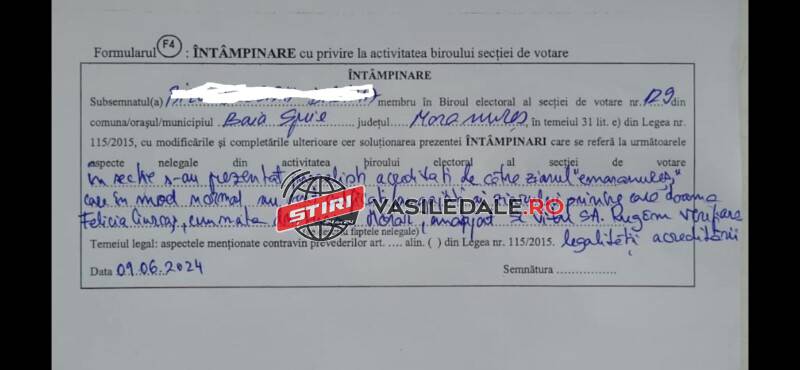 Formularul F4 : ÎNTÂMPINARE cu privire la activitatea biroului secției de votare
ÎNTÂMPINARE
Subsemnatul(a) membru în Biroul electoral al secției de votare nr. 129 din
comuna/orașul/municipiul Baia Sprie județul Maramureș, în temeiul 31 lit. e) din Legea nr.
115/2015, cu modificările și completările ulterioare cer soluționarea prezentei ÎNTÂMPINARI care se referă la următoarele
aspecte nelegale din activitatea biroului electoral al secției de votare
în secție s-au prezentat acreditați de către ziarul "emaramureș"
care în mod normal au printre care doamna
Felicia cumnata angajat Vital SA. Rugăm verificare
faptele nelegale)
Temeiul legal: aspectele menționate contravin prevederilor art. .... alin. ( ) din Legea nr. 115/2015. legalității acreditării
Data 09.06.2024 Semnătura
STIRI VASILEDALE.RO